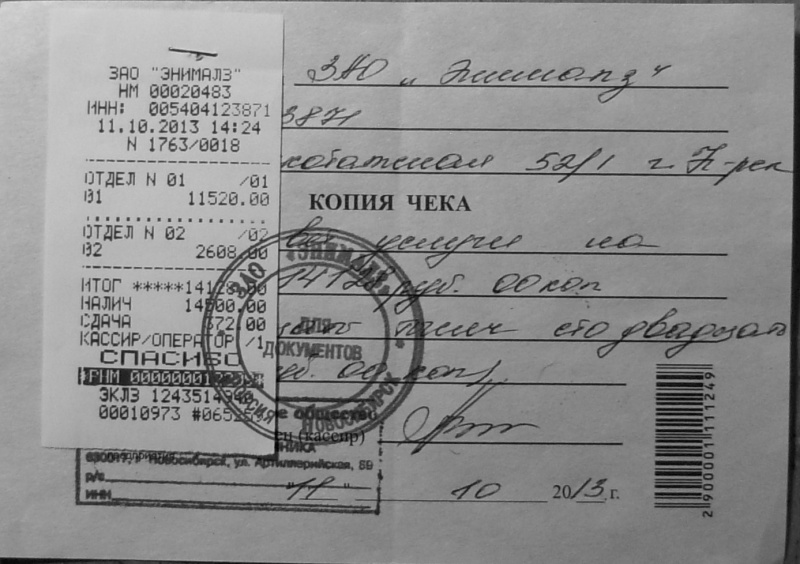 ЗАО "ЭНИМАЛЗ"
НМ 00020483
ИНН: 005404123871
11.10.2013 14:24
N 1763/0018
ОТДЕЛ N 01 /01
01 11520.00
ОТДЕЛ N 02 /02
02 2608.00
ИТОГ *****14128.00
НАЛИЧ 14500.00
СДАЧА 372.00
КАССИР/ОПЕРАТОР /1
СПАСИБО
РНМ 00000001
ЭКЛЗ 1243514340
00010973 #065
ЗАО „Энималз"
3871
52/1 г. Н-рск
КОПИЯ ЧЕКА
вет услуги на
14128 руб. 00 коп
тысяч сто двадцать
руб. 00 коп)
(кассир)
"11" 10 2013 г.
ЗАО «ЭНИМАЛЗ»
ДЛЯ ДОКУМЕНТОВ
НОВОСИБИРСК
ое общество
НИКА
630017, г. Новосибирск, ул. Артиллерийская, 59
р/с
ИНН
2 900001 111249